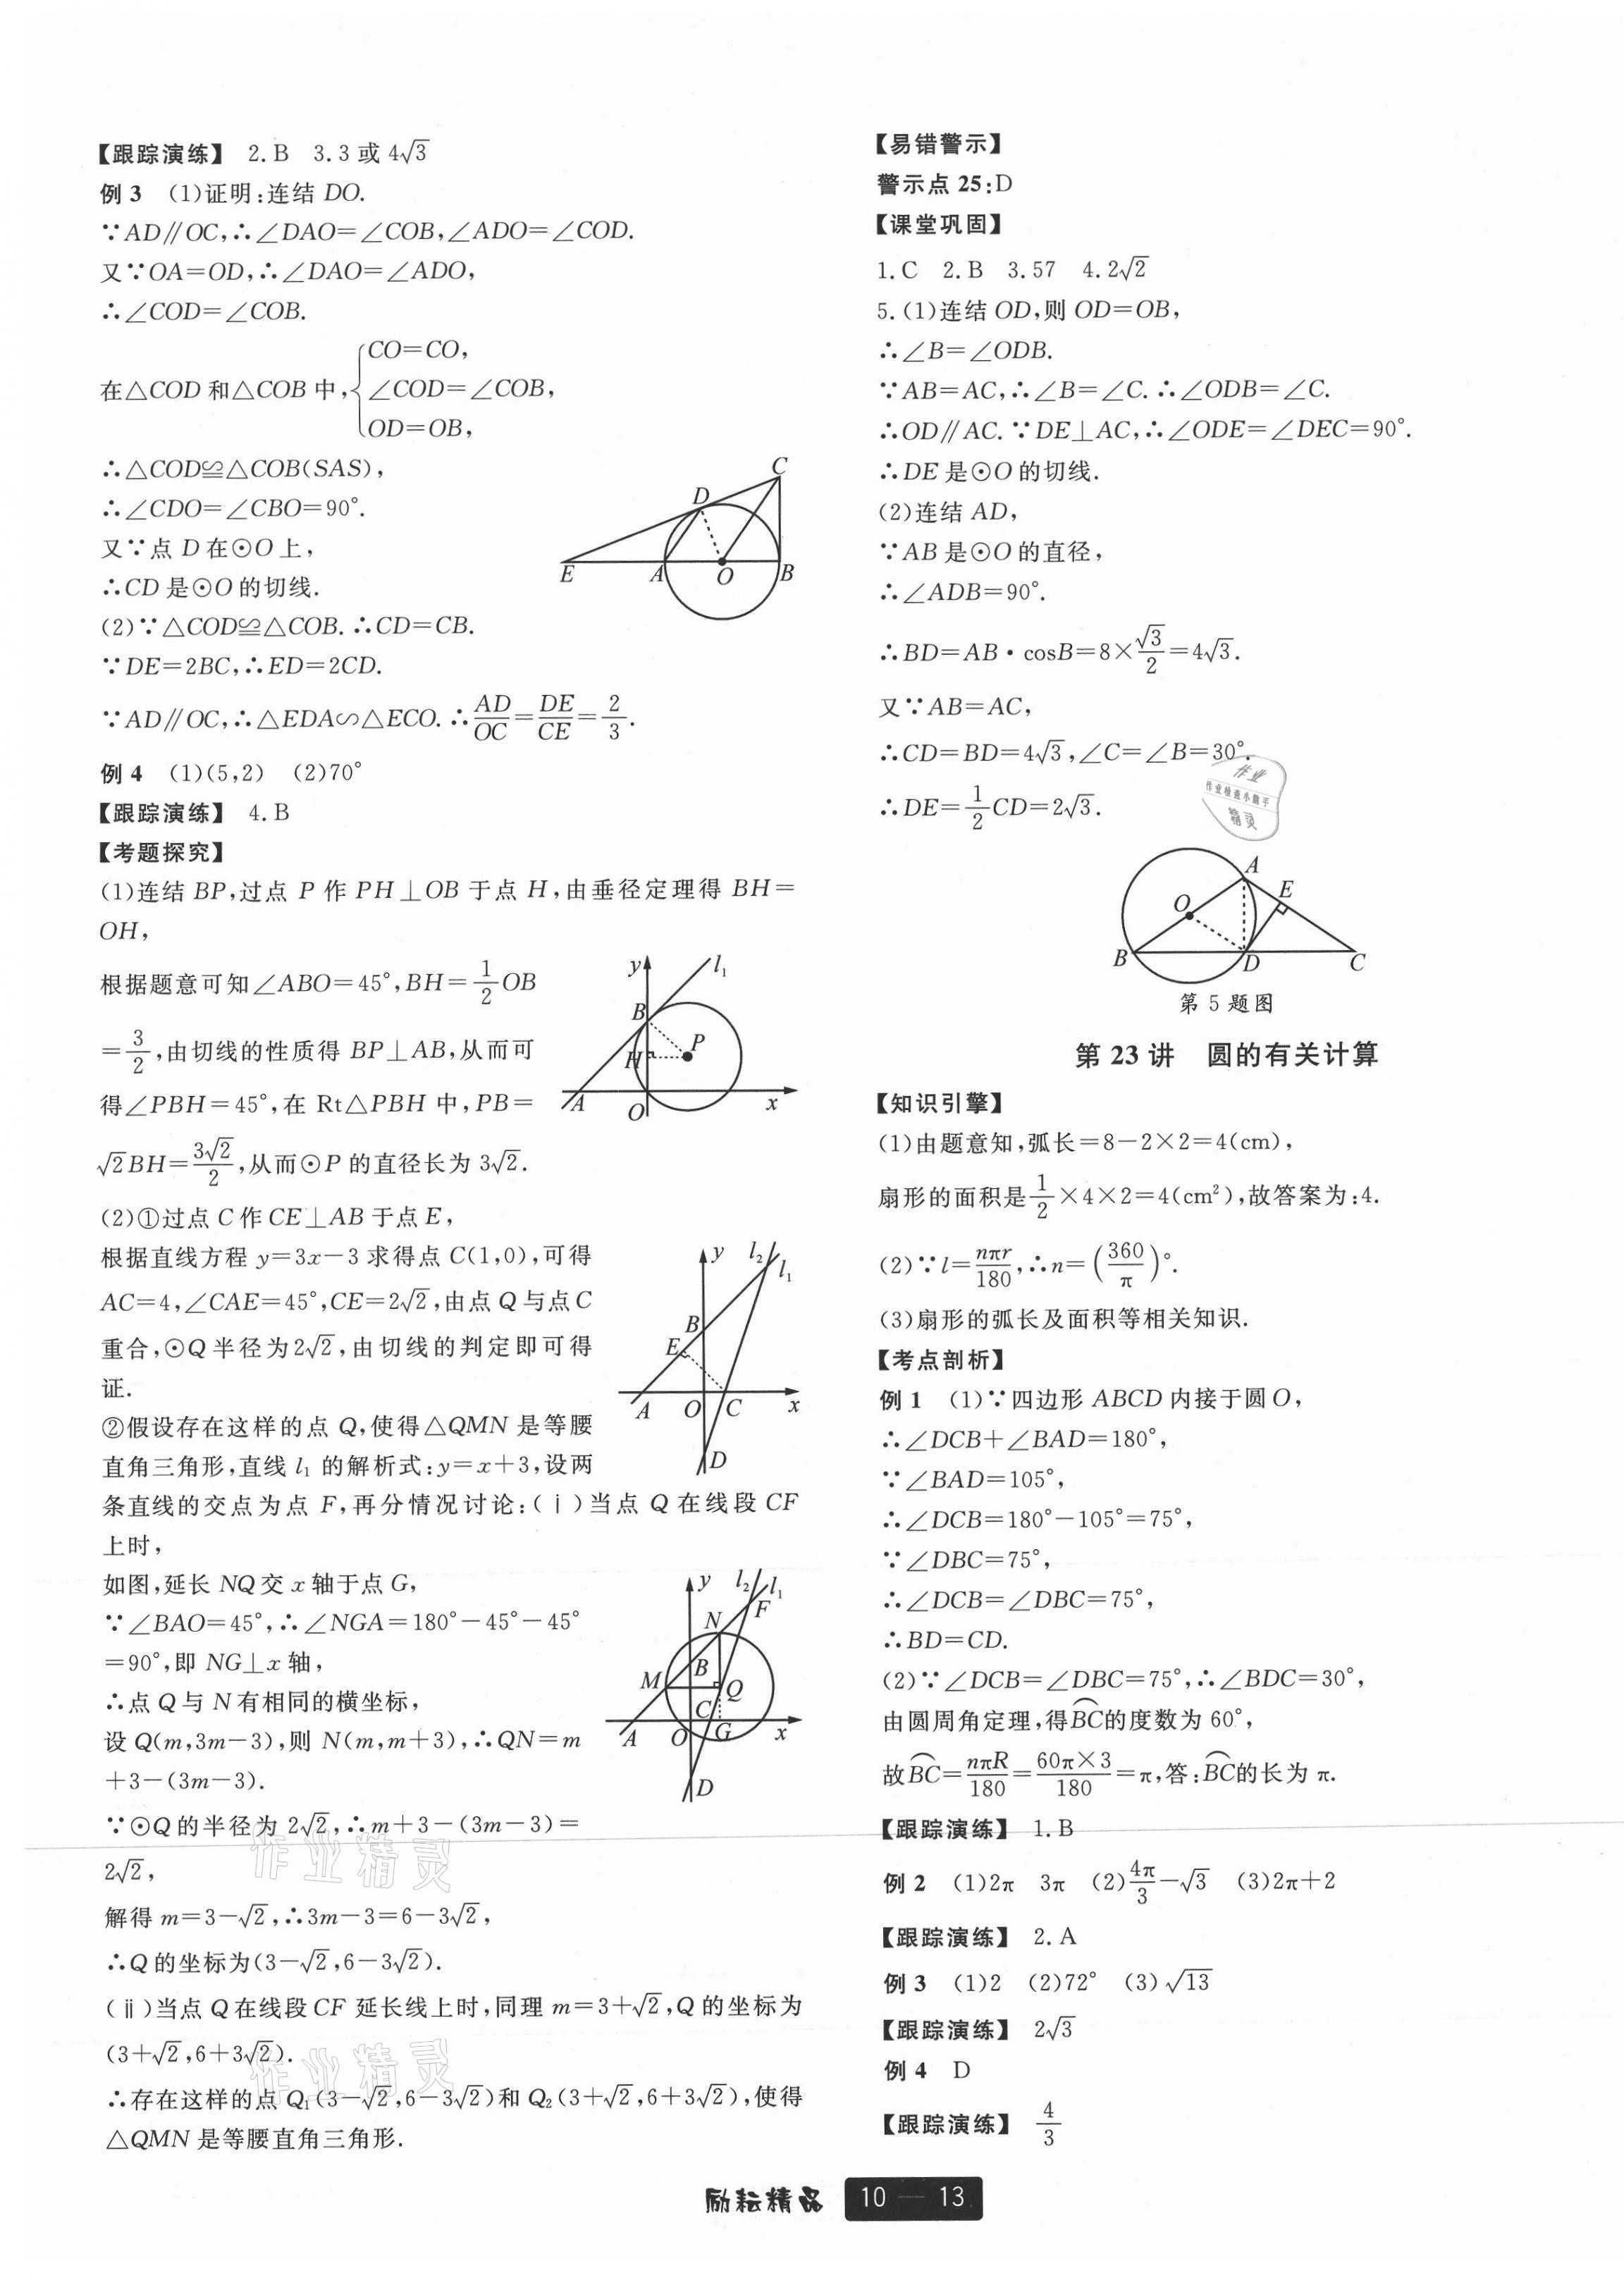 【跟踪演练】 2.B 3.3或4√3
例3 (1)证明:连结DO.
∵AD∥OC,∴∠DAO=∠COB,∠ADO=∠COD.
又∵OA=OD,∴∠DAO=∠ADO,
∴∠COD=∠COB.
在△COD和△COB中,{CO=CO, ∠COD=∠COB, OD=OB,
∴△COD≌△COB(SAS),
∴∠CDO=∠CBO=90°.
又∵点D在⊙O上,
∴CD是⊙O的切线.
C D E A O B
(2)∵△COD≌△COB.∴CD=CB.
∵DE=2BC,∴ED=2CD.
∵AD∥OC,∴△EDA∽△ECO.∴AD/OC=DE/CE=2/3.
例4 (1)(5,2) (2)70°
【跟踪演练】 4.B
【考题探究】
(1)连结BP,过点P作PH⊥OB于点H,由垂径定理得BH=
OH,
根据题意可知∠ABO=45°,BH=1/2OB
=3/2,由切线的性质得BP⊥AB,从而可
得∠PBH=45°,在Rt△PBH中,PB=
√2BH=3√2/2,从而⊙P的直径长为3√2.
y l₁ B P H A O x
(2)①过点C作CE⊥AB于点E,
根据直线方程y=3x-3求得点C(1,0),可得
AC=4,∠CAE=45°,CE=2√2,由点Q与点C
重合,⊙Q半径为2√2,由切线的判定即可得
证.
y l₂ l₁ B E A O C x D
②假设存在这样的点Q,使得△QMN是等腰
直角三角形,直线l₁的解析式:y=x+3,设两
条直线的交点为点F,再分情况讨论:(ⅰ)当点Q在线段CF
上时,
如图,延长NQ交x轴于点G,
∵∠BAO=45°,∴∠NGA=180°-45°-45°
=90°,即NG⊥x轴,
∴点Q与N有相同的横坐标,
设Q(m,3m-3),则N(m,m+3),∴QN=m
+3-(3m-3).
y l₂ l₁ F N B M Q C A O G x D
∵⊙Q的半径为2√2,∴m+3-(3m-3)=
2√2,
解得m=3-√2,∴3m-3=6-3√2,
∴Q的坐标为(3-√2,6-3√2).
(ⅱ)当点Q在线段CF延长线上时,同理m=3+√2,Q的坐标为
(3+√2,6+3√2).
∴存在这样的点Q₁(3-√2,6-3√2)和Q₂(3+√2,6+3√2),使得
△QMN是等腰直角三角形.
作业精灵
作业精灵
【易错警示】
警示点25:D
【课堂巩固】
1.C 2.B 3.57 4.2√2
5.(1)连结OD,则OD=OB,
∴∠B=∠ODB.
∵AB=AC,∴∠B=∠C.∴∠ODB=∠C.
∴OD∥AC.∵DE⊥AC,∴∠ODE=∠DEC=90°.
∴DE是⊙O的切线.
(2)连结AD,
∵AB是⊙O的直径,
∴∠ADB=90°.
∴BD=AB·cosB=8×√3/2=4√3.
又∵AB=AC,
∴CD=BD=4√3,∠C=∠B=30°.
∴DE=1/2CD=2√3.
作业
作业检查小助手
精灵
A E O B D C
第5题图
第23讲 圆的有关计算
【知识引擎】
(1)由题意知,弧长=8-2×2=4(cm),
扇形的面积是1/2×4×2=4(cm²),故答案为:4.
(2)∵l=nπr/180,∴n=(360/π)°.
(3)扇形的弧长及面积等相关知识.
【考点剖析】
例1 (1)∵四边形ABCD内接于圆O,
∴∠DCB+∠BAD=180°,
∵∠BAD=105°,
∴∠DCB=180°-105°=75°,
∵∠DBC=75°,
∴∠DCB=∠DBC=75°,
∴BD=CD.
(2)∵∠DCB=∠DBC=75°,∴∠BDC=30°,
由圆周角定理,得⌒BC的度数为60°,
故⌒BC=nπR/180=60π×3/180=π,答:⌒BC的长为π.
【跟踪演练】 1.B
例2 (1)2π 3π (2)4π/3-√3 (3)2π+2
【跟踪演练】 2.A
例3 (1)2 (2)72° (3)√13
【跟踪演练】 2√3
例4 D
【跟踪演练】 4/3
励耘精品 10 — 13